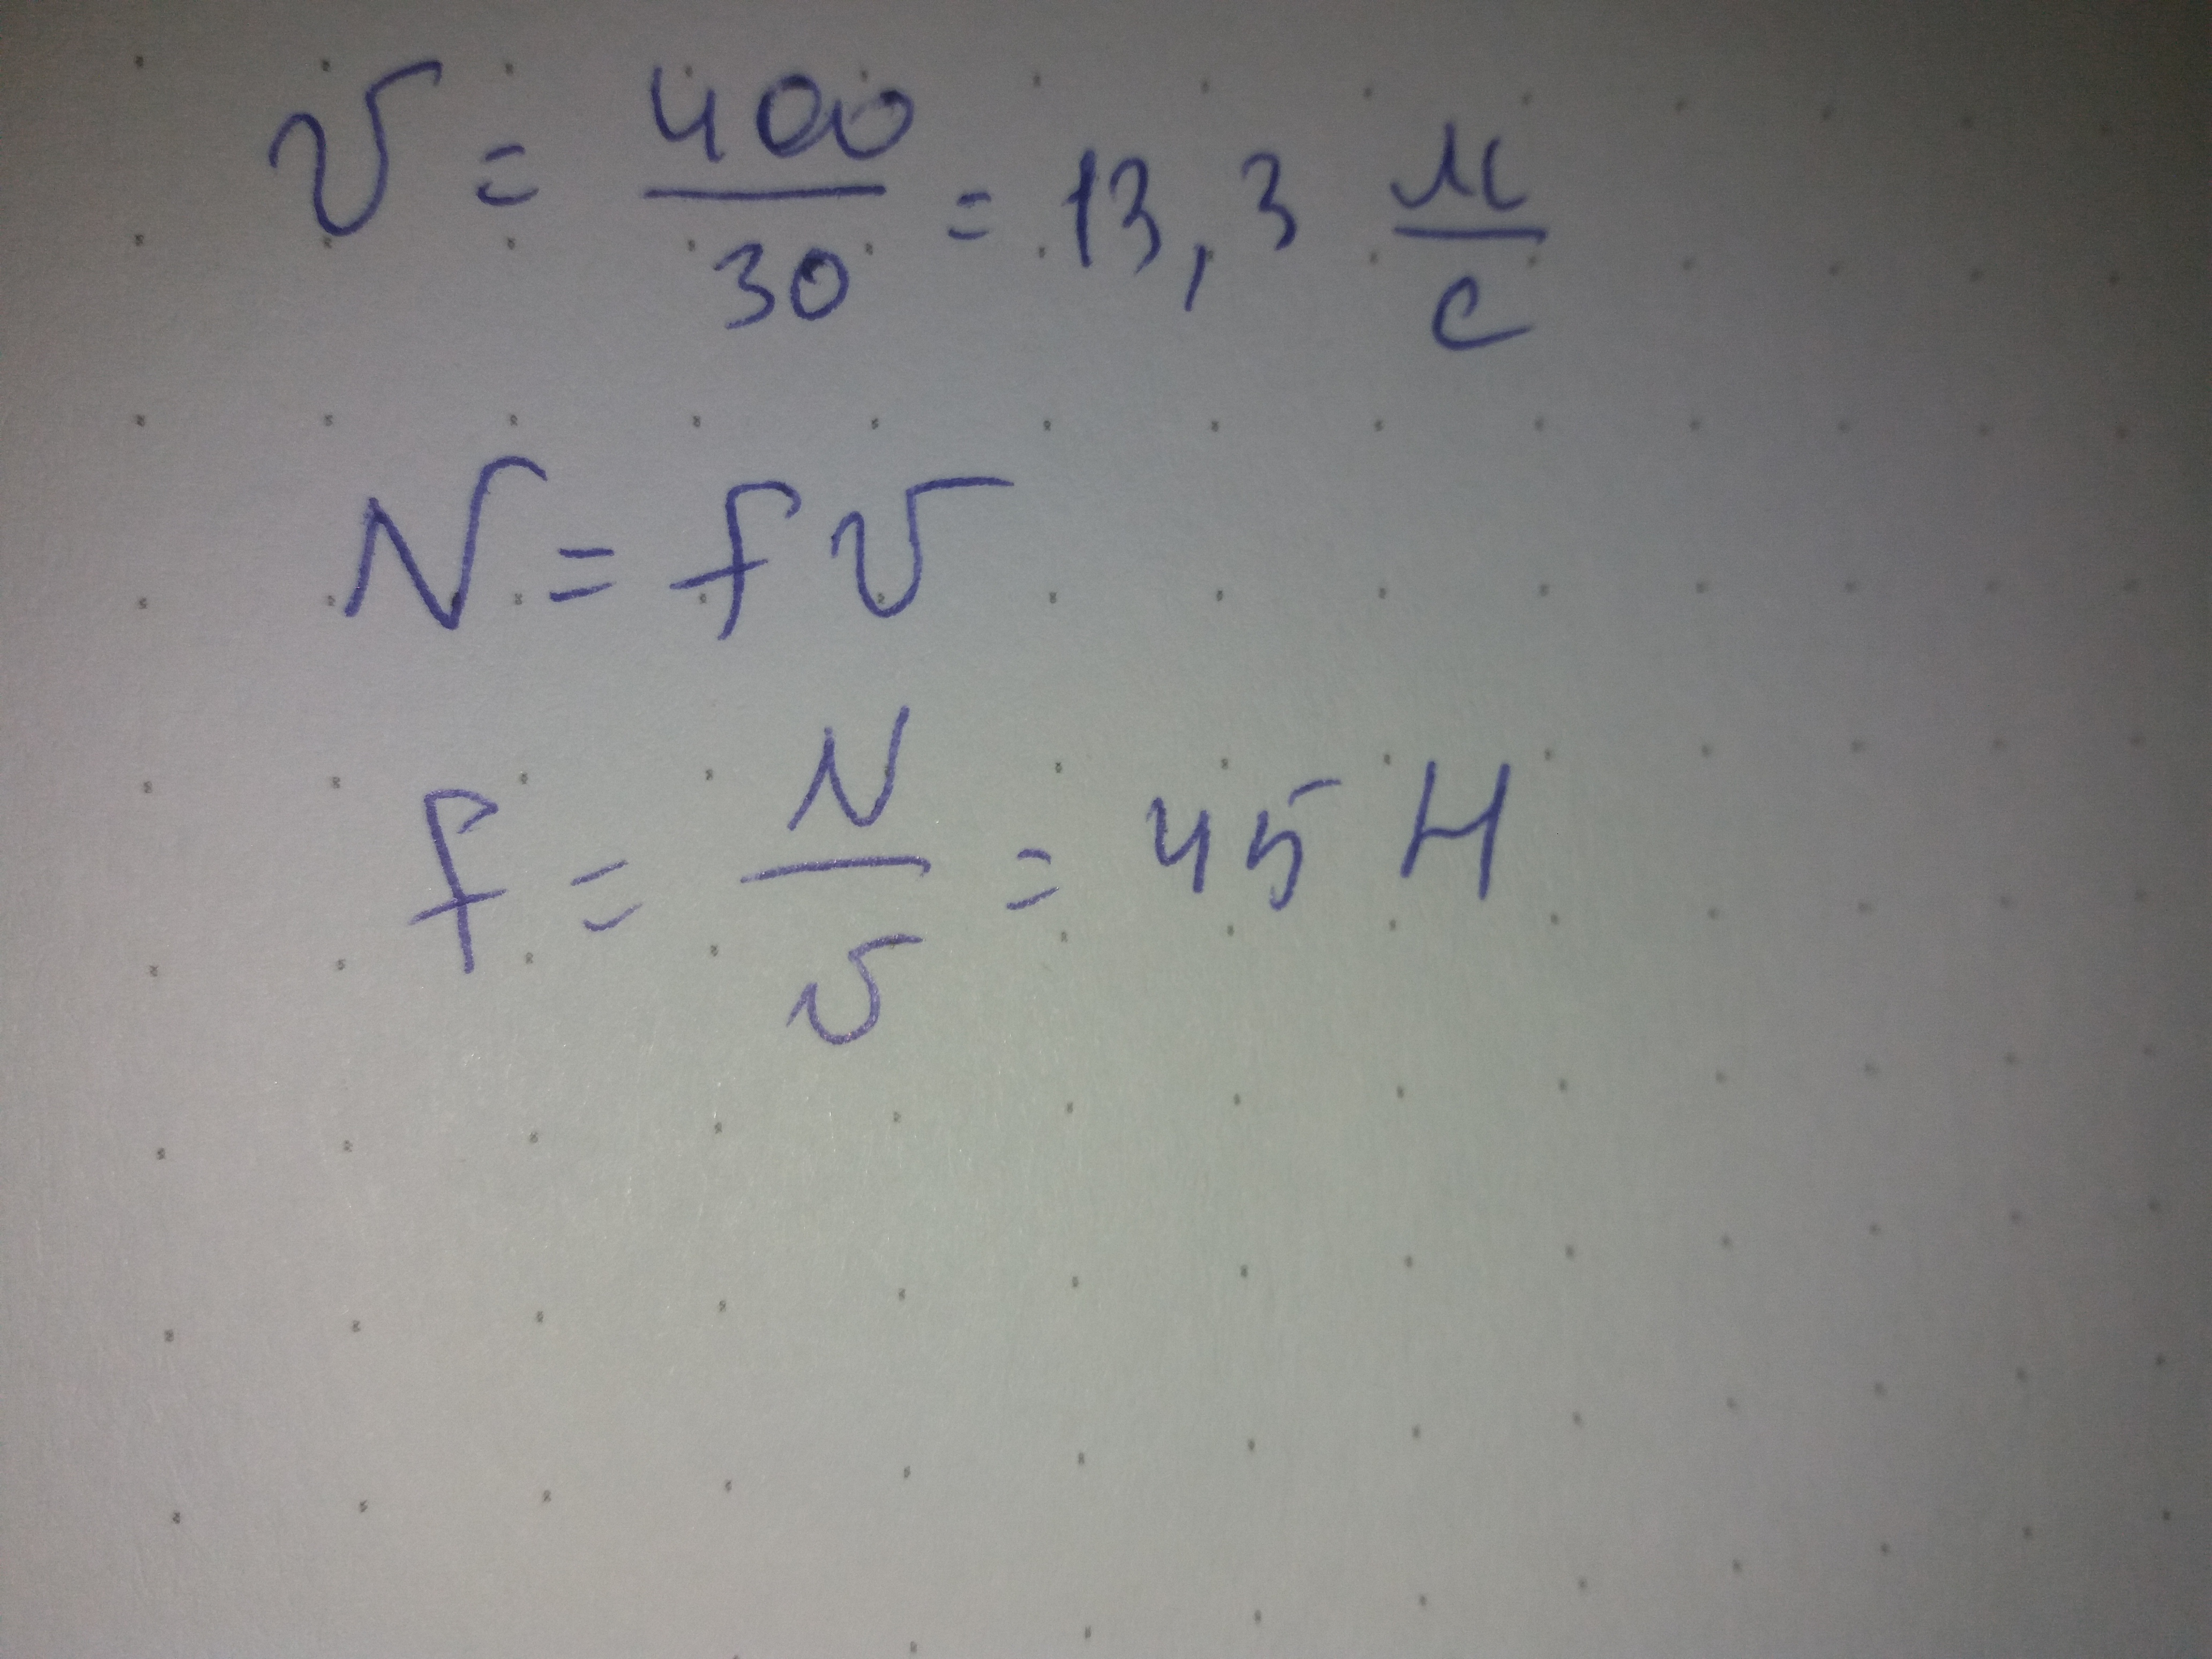 v = 400/30 = 13,3 м/с
N = fv
f = N/v = 45 Н